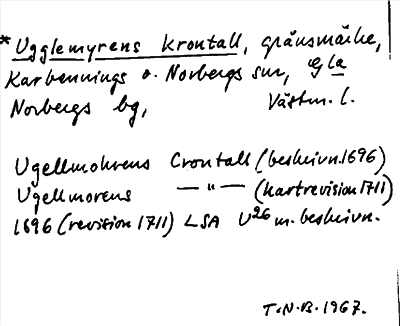 *Ugglemyrens krontall, gränsmärke,
Karbennings o. Norbergs snr, Gla
Norbergs bg, Västm. l.
Ugellmohrens Crontall (beskrivn. 1696)
Ugellmorens —"— (kartrevision 1711)
1696 (revision 1711) LSA U26 m. beskrivn.
T.N.B. 1967.